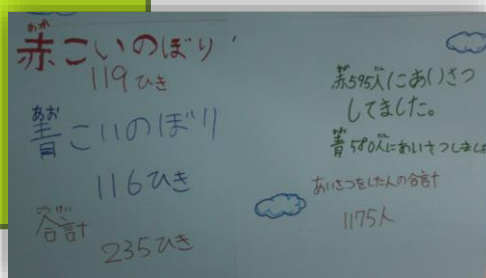 あか
赤こいのぼり
119ひき
あお
青こいのぼり
116ひき
ごうけい
合計
235ひき
赤595人にあいさつ
してました。
青580人にあいさつしまし
あいさつをした人の合計
1175人